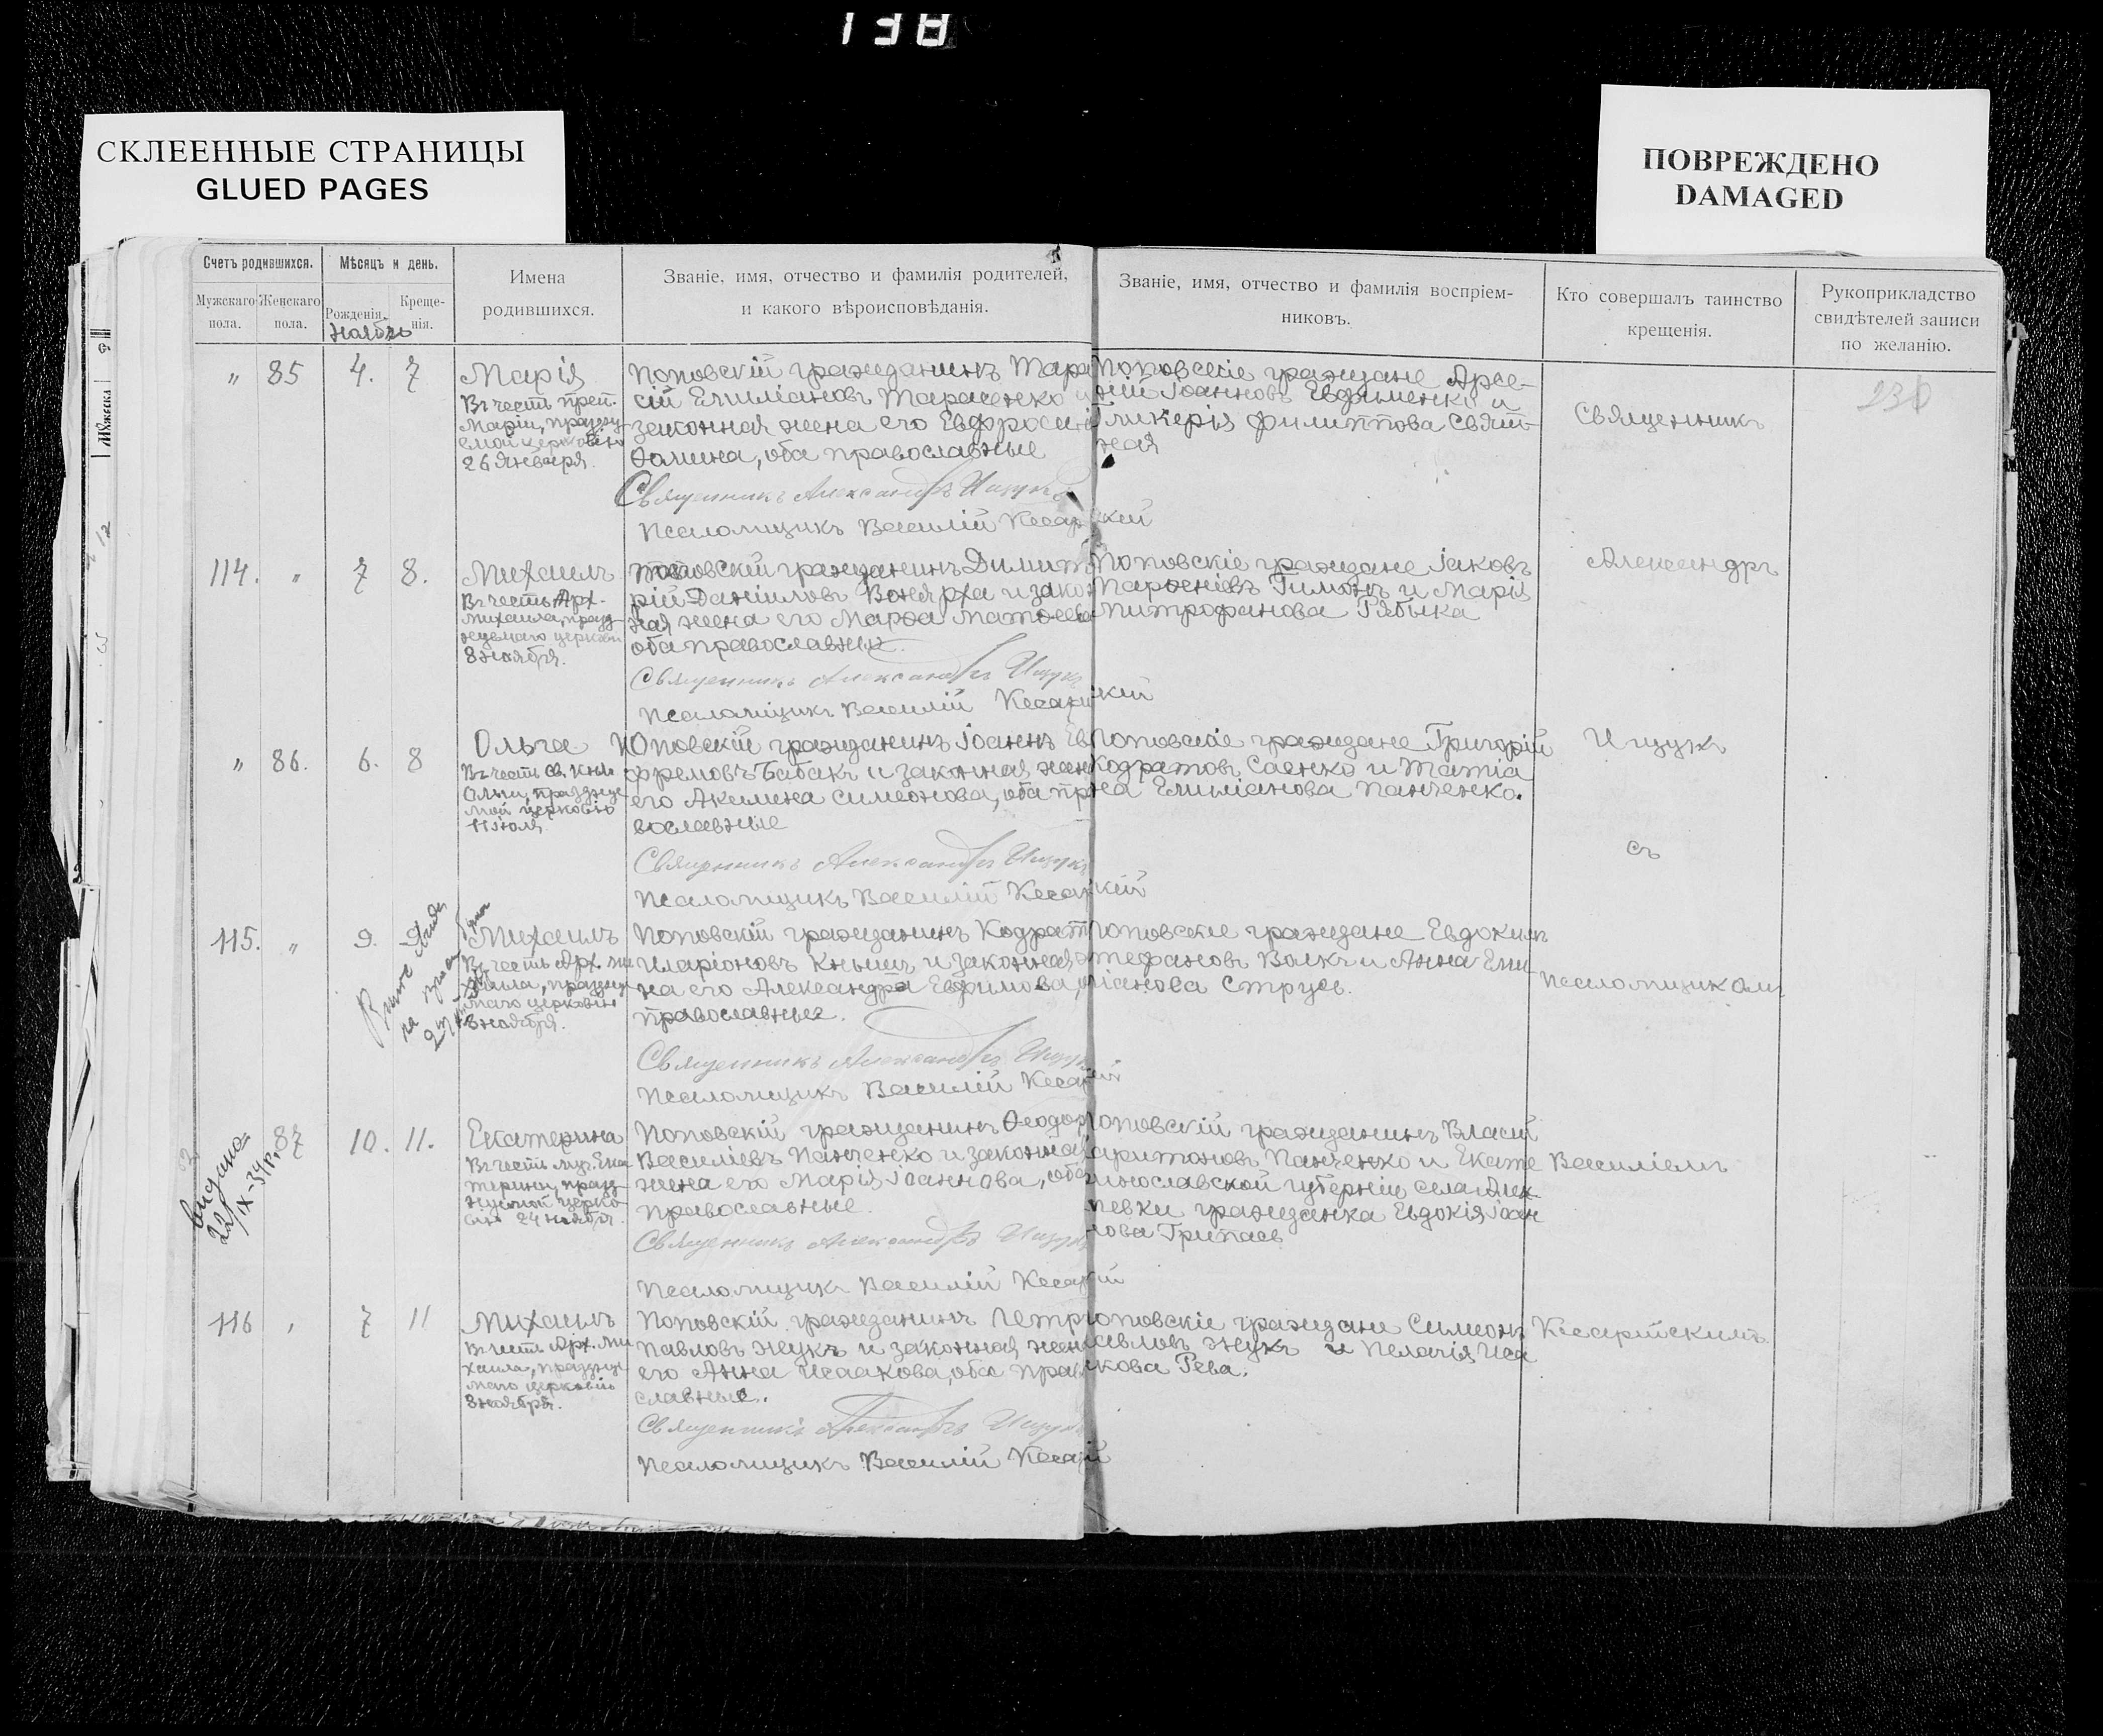 138
СКЛЕЕННЫЕ СТРАНИЦЫ
GLUED PAGES
ПОВРЕЖДЕНО
DAMAGED
Счетъ родившихся.
Мѣсяцъ и день.
Имена
родившихся.
Званіе, имя, отчество и фамилія родителей,
и какого вѣроисповѣданія.
Званіе, имя, отчество и фамилія воспріем-
никовъ.
Кто совершалъ таинство
крещенія.
Рукоприкладство
свидѣтелей записи
по желанію.
Мужскаго
пола.
Женскаго
пола.
Рожденія.
Креще-
нія.
Ноябрь
„ 85 4. 7
Марія
Въ честь преп.
Маріи, праздну-
емой церковію
26 Января.
Поповскій гражданинъ Тара
сій Емиліановъ Тарасенко и
законная жена его Евфросинія
Ѳомина, оба православные
Священникъ Александръ Ищукъ
Псаломщикъ Василій Кесарскій
Поповскіе граждане Арсе-
ній Іоанновъ Евдоменко и
Гликерія Филиппова Свят-
ная
Священникъ
114. „ 7 8.
Михаилъ
Въ честь Арх.
Михаила, празд-
нуемаго церковію
8 ноября.
Поповскій гражданинъ Димит
рій Даніиловъ и закон
ная жена его Марѳа Матѳеева
оба православные.
Священникъ Александръ Ищукъ
Псаломщикъ Василій Кесарскій
Поповскіе граждане Іаковъ
Парѳеніевъ Тимонъ и Марія
Митрофанова Рябыка
Александръ
„ 86. 6. 8
Ольга
Въ честь св. кн.
Ольги, праздну-
мой церковію
11 Іюля
Поповскій гражданинъ Іоаннъ Ев
фремовъ Бабакъ и законная жен
его Акилина Симеонова, оба пра
вославные
Священникъ Александръ Ищукъ
Псаломщикъ Василій Кесарскій
Поповскіе граждане Григорій
Кодратовъ Саенко и Татіа
на Емиліанова Панченко.
Ищукъ
съ
115. „ 9. 9
Михаилъ
Въ честь Арх. Ми
хаила, праздну-
маго церковію
8 ноября.
Поповскій гражданинъ Кодрат
Иларіоновъ Кнышъ и законная
на его Александра Евфимова,
православные.
Священникъ Александръ Ищукъ
Псаломщикъ Василій Кесарій
Поповскіе граждане Евдокимъ
Стефановъ Волкъ и Анна Еми
ліанова Струсь.
Псаломщикомъ
видано
22/IX-34р.
87 10. 11.
Екатерина
Въ честь муч. Ека
терины, празд-
нуемой церко-
вію 24 ноября.
Поповскій гражданинъ Ѳеодор
Василіевъ Панченко и законная
жена его Марія Іоаннова, оба
православные.
Священникъ Александръ Ищукъ
Псаломщикъ Василій Кесарій
Поповскій гражданинъ Власій
Харитоновъ Панченко и Екате
ринославской губерніи села
певки гражданка Евдокія Іоан
нова Грипась
Василіемъ
116 „ 7 11
Михаилъ
Въ честь Арх. Ми
хаила, праздну-
маго церковію
8 ноября.
Поповскій гражданинъ Петръ
Павловъ Жукъ и законная жен
его Анна Исаакова, оба право
славные.
Священникъ Александръ Ищукъ
Псаломщикъ Василій Кесарій
Поповскіе граждане Симеонъ
Павловъ Жукъ и Пелагія Иса
акова Рева.
Кесарійскимъ